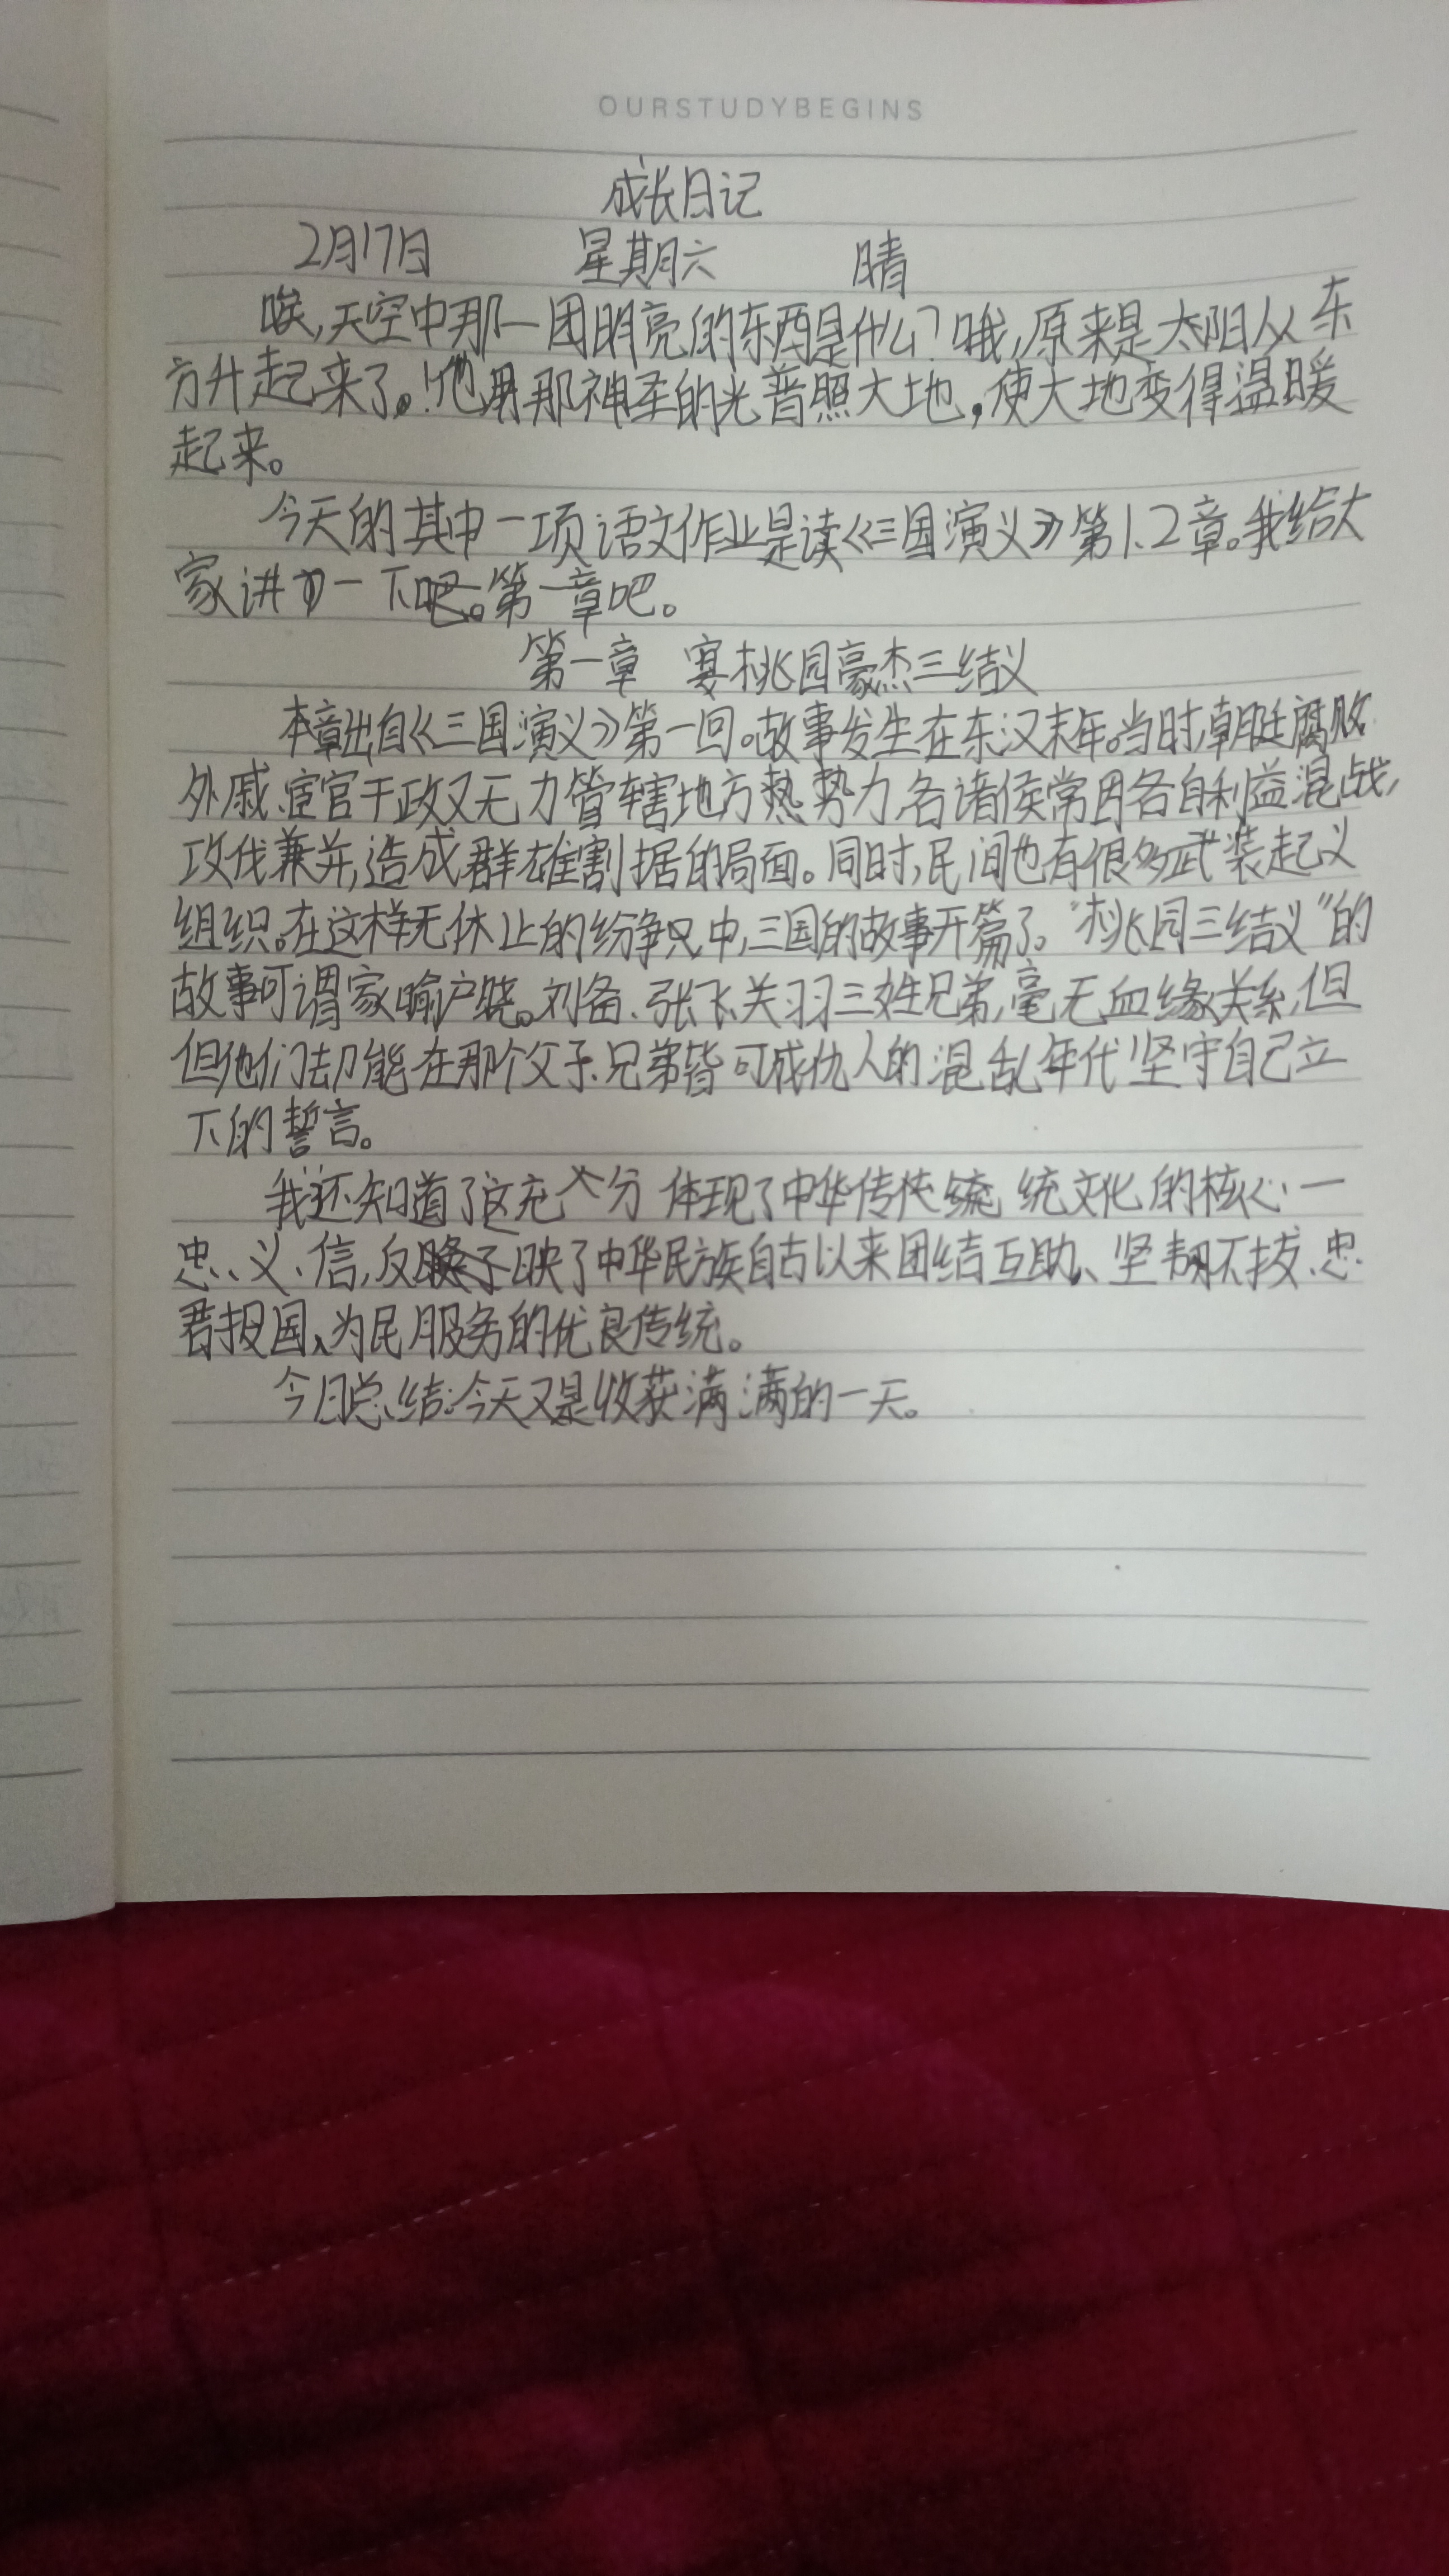 OURSTUDYBEGINS
成长日记
2月17日 星期六 晴
唉,天空中那一团明亮的东西是什么?哦,原来是太阳从东
方升起来了。!他用那神圣的光普照大地,使大地变得温暖
起来。
今天的其中一项语文作业是读《三国演义》第1、2章。我给大
家讲一下吧。第一章吧。
第一章 宴桃园豪杰三结义
本章出自《三国演义》第一回。故事发生在东汉末年。当时,朝廷腐败
外戚、宦官干政又无力管辖地方热势力,各诸侯常因各自利益混战,
攻伐兼并,造成群雄割据的局面。同时,民间也有很多武装起义
组织。在这样无休止的纷争只中,三国的故事开篇了。“桃园三结义”的
故事可谓家喻户晓。刘备、张飞、关羽三姓兄弟,毫无血缘关系,但
但他们却能在那个父子、兄弟皆可成仇人的混乱年代坚守自己立
下的誓言。
我还知道了这充分 体现了中华传统 统文化的核心一
忠、义、信,反映了中华民族自古以来团结互助、坚韧不拔、忠
君报国、为民服务的优良传统。
今日总结:今天又是收获满满的一天。